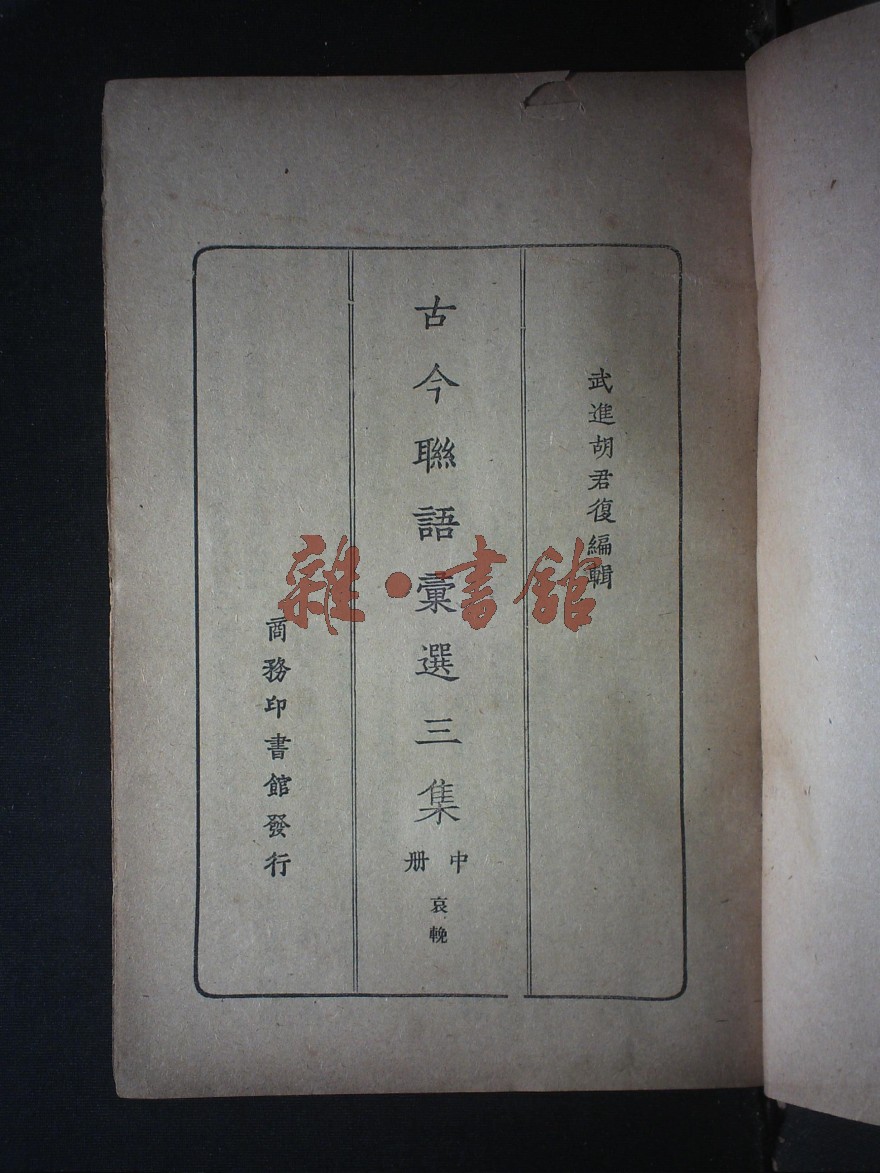 武進胡君復編輯
古今聯語彙選三集
中册
哀輓
商務印書館發行
雜·書館